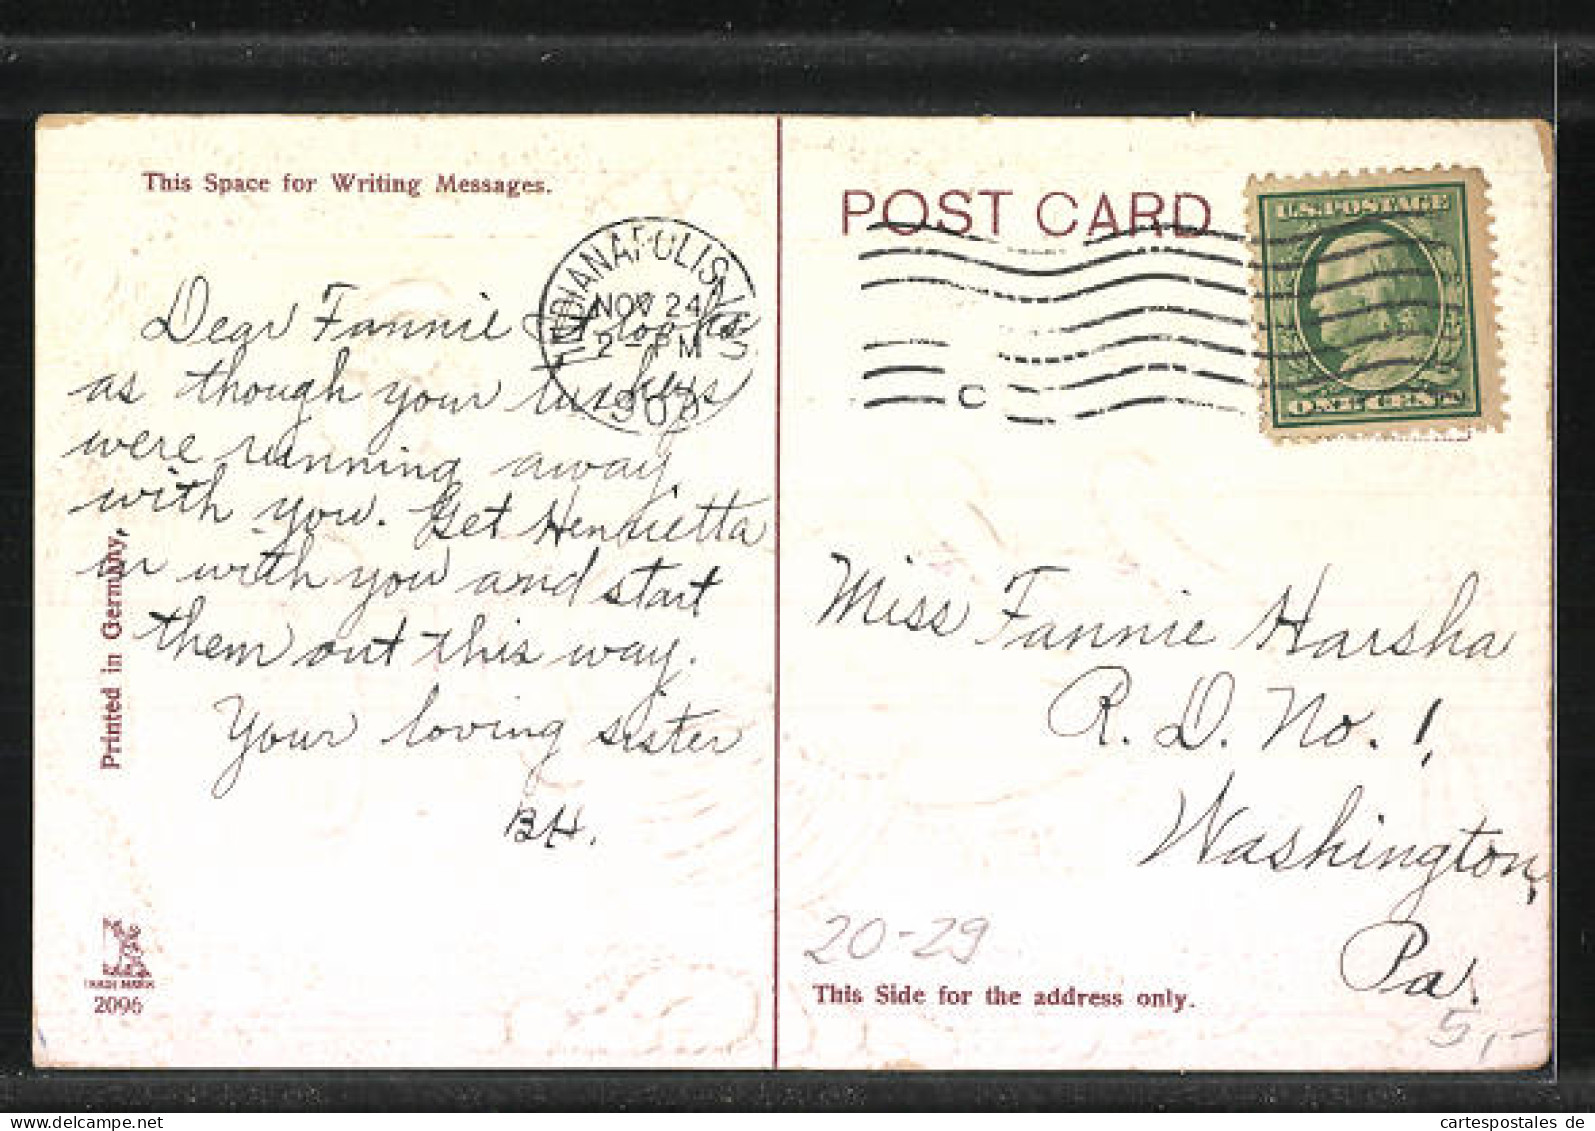 This Space for Writing Messages.
INDIANAPOLIS
NOV 24
2 - PM
Dear Fannie - It looks
as though your turkeys
were running away
with you. Get Henrietta
in with you and start
them out this way.
Your loving sister
BH.
Printed in Germany.
TRADE MARK
2096
POST CARD
U.S. POSTAGE
ONE CENT
C
Miss Fannie Harsha
R. D. No. 1,
Washington,
Pa.
20-29
This Side for the address only.
5,-
cartespostales de